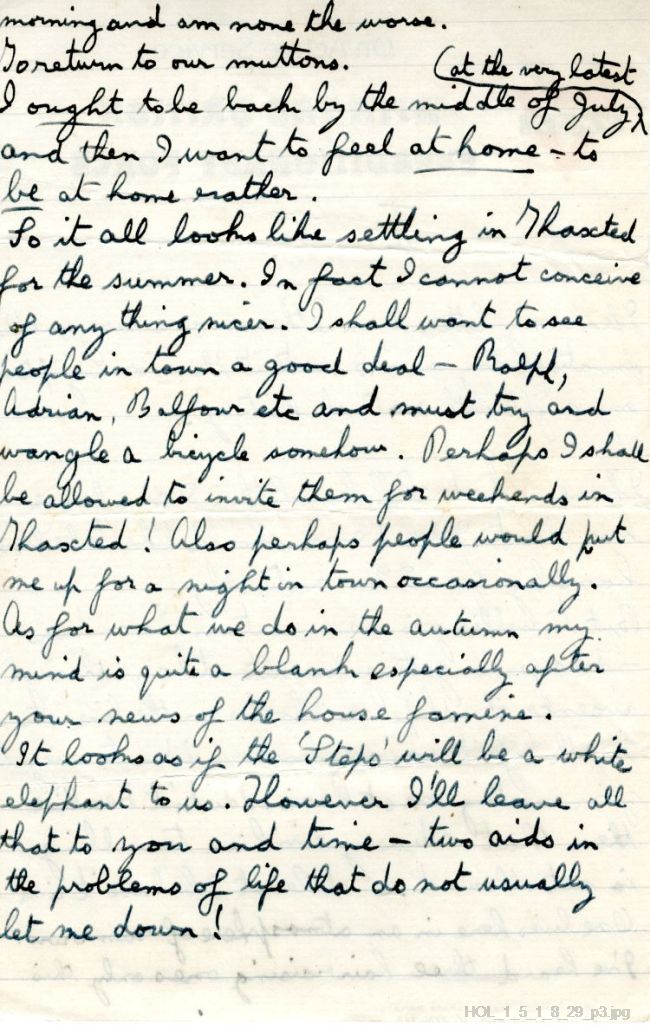 morning and am none the worse.
To return to our muttons. (at the very latest
I ought to be back by the middle of July,
and then I want to feel at home - to
be at home rather.
So it all looks like settling in Thaxted
for the summer. In fact I cannot conceive
of any thing nicer. I shall want to see
people in town a good deal - Ralph,
Adrian, Balfour etc and must try and
wangle a bicycle somehow. Perhaps I shall
be allowed to invite them for weekends in
Thaxted! Also perhaps people would put
me up for a night in town occasionally.
As for what we do in the autumn my
mind is quite a blank especially after
your news of the house famine.
It looks as if the 'Steps' will be a white
elephant to us. However I'll leave all
that to you and time - two aids in
the problems of life that do not usually
let me down!
HOL_1_5_1_8_29_p3.jpg